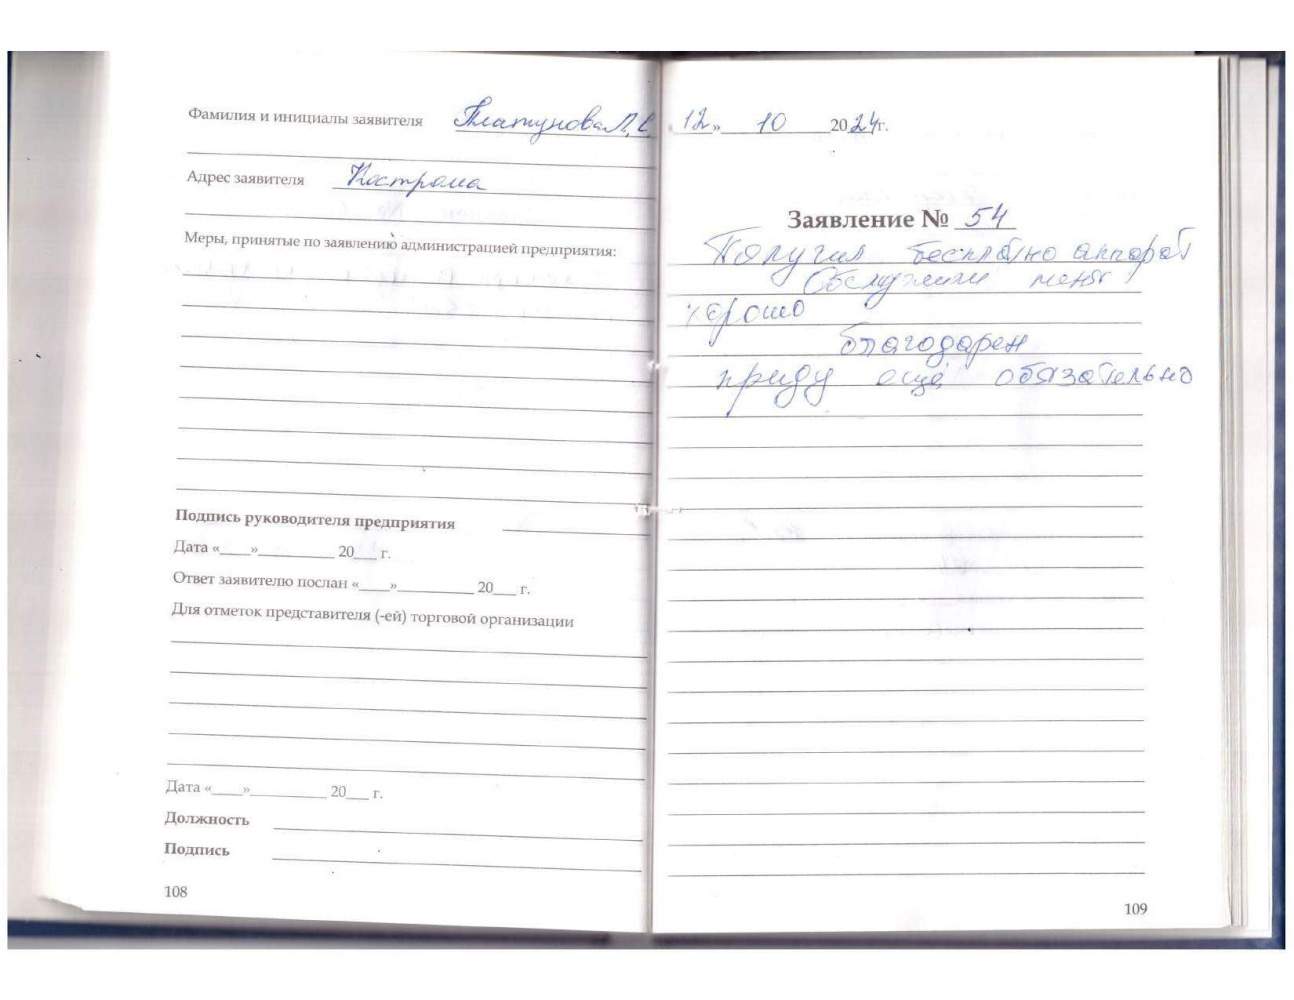 Фамилия и инициалы заявителя Платунова Л. С
Адрес заявителя Кострома
Меры, принятые по заявлению администрацией предприятия:
Подпись руководителя предприятия
Дата «____»__________ 20___ г.
Ответ заявителю послан «____»__________ 20___ г.
Для отметок представителя (-ей) торговой организации
Дата «____»__________ 20___ г.
Должность
Подпись
108
12» 10 2024г.
Заявление № 54
Получил бесплатно аппарат
Обслужили меня
хорошо
благодарен
приду еще обязательно
109